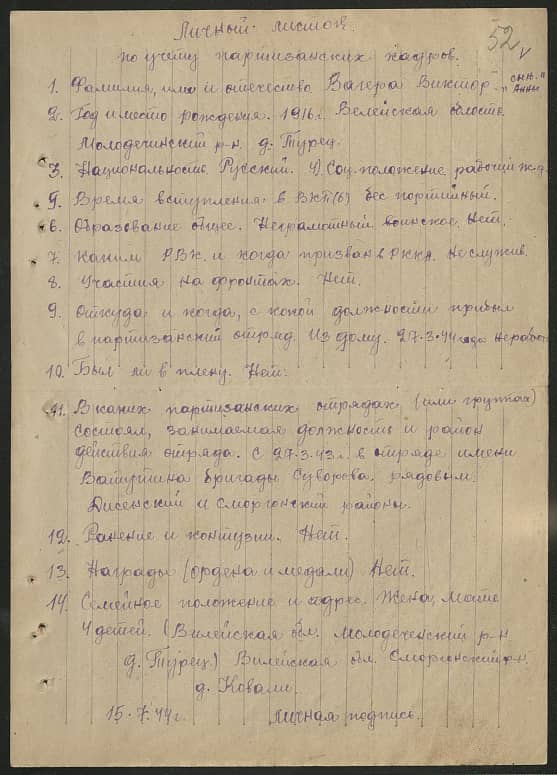 52 v
Личный листок
по учёту партизанских кадров.
1. Фамилия, имя и отечество Вагера Виктор
Анны
2. Год и место рождения. 1916 г. Велейская область
Молодечинский р-н. д. Турец.
3. Национальность Русский. 4) Соц. положение рабочий ж.д.
5. Время вступления в ВКП(б) бес партийный.
6. Образование общее. Неграмотный воинское. Нет.
7. Каким РВК. и когда призван в РККА. Не служив.
8. Участия на фронтах. Нет.
9. Откуда и когда, с какой должности прибыл
в партизанский отряд. Из дому. 27.3.44 года
10. Был ли в плену. Нет.
11. В каких партизанских отрядах (или группах)
состоял, занимаемая должность и район
действия отряда. С 27.3.43 г. в отряде имени
Ватутина бригады Суворова. рядовым.
Дисенский и Сморгонский районы.
12. Ранение и контузии. Нет.
13. Награды (ордена и медали) Нет.
14. Семейное положение и адрес. Жена, Мать
4 детей. (Вилейская обл. Молодеченский р-н
д. Турец) Вилейская обл. Сморгонский р-н.
д. Ковали.
15.7.44 г. личная подпись.